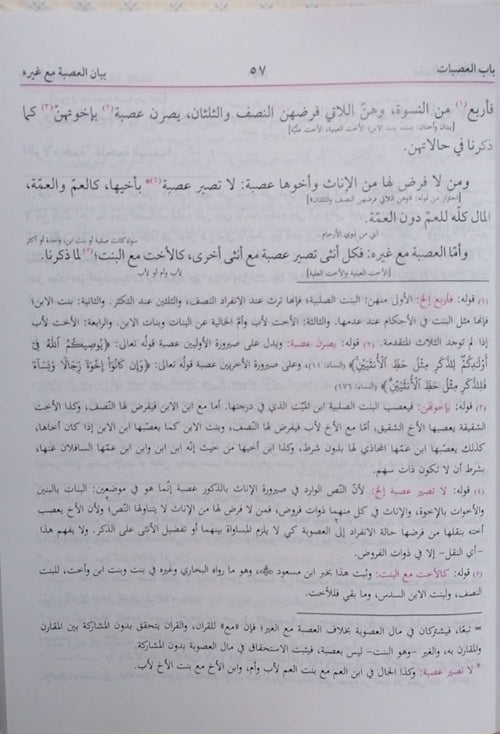 باب العصبات ٥٧ بيان العصبة مع غيره
فأربع(١) من النسوة، وهنّ اللاتي فرضهن النصف والثلثان، يصرن عصبة(٢) بإخوتهنّ(٣) كما
[بنتان وأختان: بنت، بنت الابن؛ الأخت العينية، الأخت علّيّة]
ذكرنا في حالاتهن.
ومن لا فرض لها من الإناث وأخوها عصبة: لا تصير عصبة(٤)* بأخيها، كالعم والعمة،
[احتراز من قوله: «وهن اللاتي فرضهن النصف والثلثان»]
المال كلّه للعم دون العمة.
التي من ذوي الأرحام
سواء كانت صلبية أو بنت ابن، واحدة أو أكثر
وأمّا العصبة مع غيره: فكل أنثى تصير عصبة مع أنثى أخرى، كالأخت مع البنت؛(٥) لما ذكرنا.
[الأخت العينية والأخت العلية] لأب وأم أو لأب
(١) قوله: فأربع إلخ: الأولى منهن: البنت الصلبية؛ فإنها ترث عند الانفراد النصف، والثلثين عند التكثر. والثانية: بنت الابن؛
فإنها مثل البنت في الأحكام عند عدمها. والثالثة: الأخت لأب وأمّ الخالية عن البنات وبنات الابن. والرابعة: الأخت لأب
إذا لم توجد الثلاث المتقدمة. (٢) قوله: يصرن عصبة: ويدل على صيرورة الأوليين عصبة قولُه تعالى: ﴿يُوصِيكُمُ ٱللَّهُ فِىٓ
أَوْلَٰدِكُمْ لِلذَّكَرِ مِثْلُ حَظِّ ٱلْأُنثَيَيْنِ﴾ (النساء: ١١)، وعلى صيرورة الأخريين عصبة قولُه تعالى: ﴿وَإِن كَانُوٓا۟ إِخْوَةً رِّجَالًا وَنِسَآءً
فَلِلذَّكَرِ مِثْلُ حَظِّ ٱلْأُنثَيَيْنِ﴾ (النساء: ١٧٦).
(٣) قوله: بإخوتهن: فيعصب البنت الصلبية ابن الميّت الذي في درجتها. أما مع ابن الابن فيفرض لها النّصف، وكذا الأخت
الشقيقة يعصبها الأخ الشقيق، أمّا مع الأخ لأب فيفرض لها النّصف، وبنت الابن كما يعصّبها ابن الابن إذا كان أخاها،
كذلك يعصبها ابن عمّها المحاذي لها بدون شرط، وكذا ابن أخيها من حيث إنّه ابن ابن وابن ابن عمها السافلان عنها،
بشرط أن لا تكون ذات سهم.
(٤) قوله: لا تصير عصبة إلخ: لأنّ النّص الوارد في صيرورة الإناث بالذكور عصبة إنّما هو في موضعين: البنات بالبنين
والأخوات بالإخوة، والإناث في كل منهما ذوات فروض، فمن لا فرض لها من الإناث لا يتناولها النّص؛ ولأن الأخ يعصب
أخته بنقلها من فرضها حالة الانفراد إلى العصوبة كي لا يلزم المساواة بينهما أو تفضيل الأنثى على الذكر. ولا يفهم هذا
-أي النقل- إلا في ذوات الفروض.
(٥) قوله: كالأخت مع البنت: وثبت هذا بخبر ابن مسعود ﷺ، وهو ما رواه البخاري وغيره في بنت وبنت ابن وأخت، للبنت
النصف، ولبنت الابن السدس، وما بقي فللأخت.
= تبعًا، فيشتركان في مال العصوبة بخلاف العصبة مع الغير؛ فإن «مع» للقران، والقران يتحقق بدون المشاركة بين المقارن
والمقارن به، والغير -وهو البنت- ليس بعصبة، فيثبت الاستحقاق في مال العصوبة بدون المشاركة.
* لا تصير عصبة: وكذا الحال في ابن العم مع بنت العم لأب وأم، وابن الأخ مع بنت الأخ لأب.